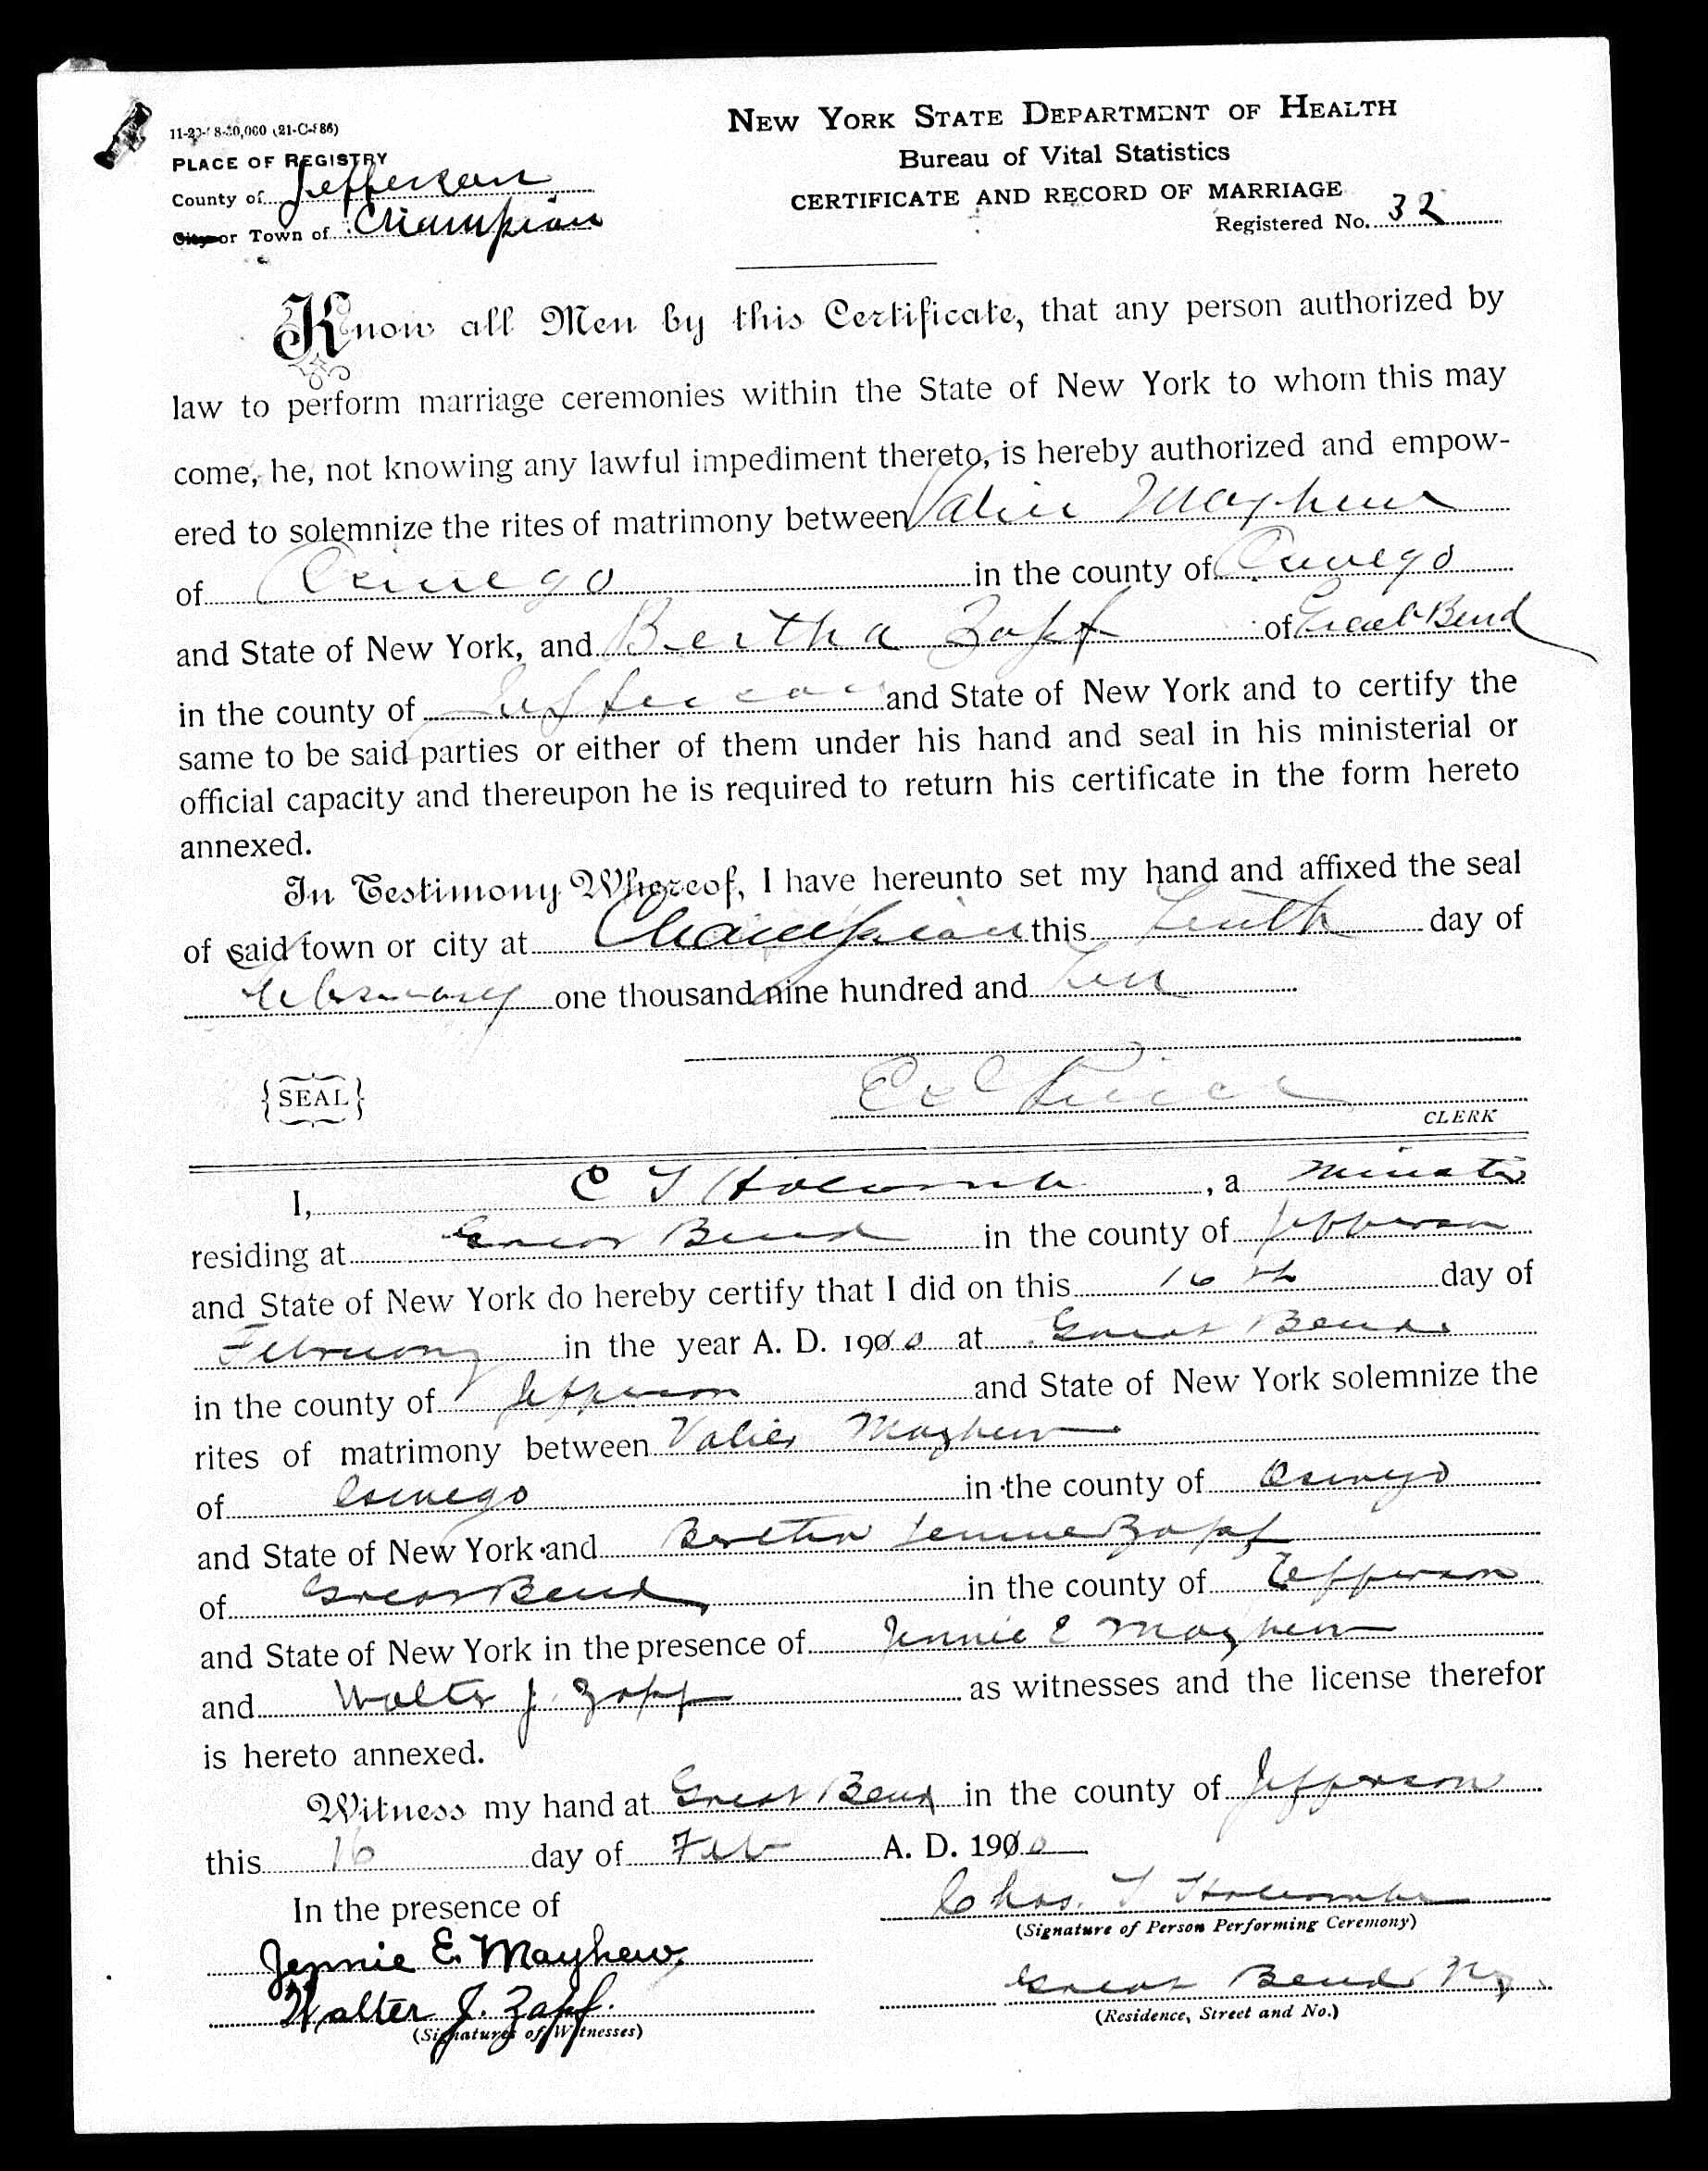 NEW YORK STATE DEPARTMENT OF HEALTH
Bureau of Vital Statistics
CERTIFICATE AND RECORD OF MARRIAGE
Registered No. 32
PLACE OF REGISTRY
County of Jefferson
or Town of Champion
Know all Men by this Certificate, that any person authorized by
law to perform marriage ceremonies within the State of New York to whom this may
come, he, not knowing any lawful impediment thereto, is hereby authorized and empow-
ered to solemnize the rites of matrimony between Valier Mayhew
of Oswego in the county of Oswego
and State of New York, and Bertha Zapf of Great Bend
in the county of Jefferson and State of New York and to certify the
same to be said parties or either of them under his hand and seal in his ministerial or
official capacity and thereupon he is required to return his certificate in the form hereto
annexed.
In Testimony Whereof, I have hereunto set my hand and affixed the seal
of said town or city at Champion this Tenth day of
February one thousand nine hundred and Ten
{SEAL}
CLERK
I, C T Holcomb, a Minister
residing at Great Bend in the county of Jefferson
and State of New York do hereby certify that I did on this 16th day of
February in the year A. D. 1910 at Great Bend
in the county of Jefferson and State of New York solemnize the
rites of matrimony between Valier Mayhew
of Oswego in the county of Oswego
and State of New York and Bertha Jennie Zapf
of Great Bend in the county of Jefferson
and State of New York in the presence of Jennie E Mayhew
and Walter J. Zapf as witnesses and the license therefor
is hereto annexed.
Witness my hand at Great Bend in the county of Jefferson
this 16 day of Feb A. D. 1910
In the presence of
Chas. T Holcombe
(Signature of Person Performing Ceremony)
Jennie E. Mayhew
Walter J. Zapf.
(Signatures of Witnesses)
Great Bend Ny
(Residence, Street and No.)